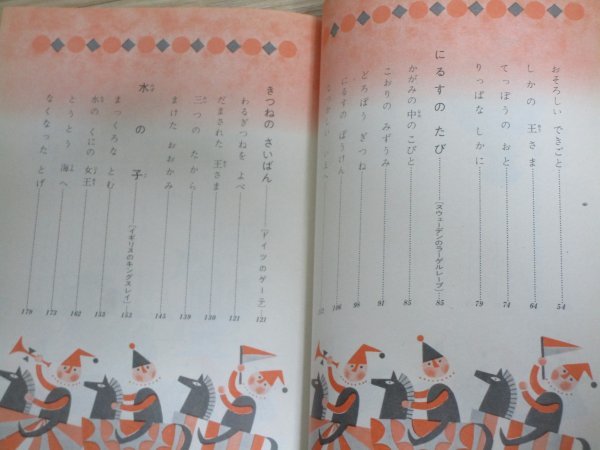 おそろしい できごと……54
しかの 王さま……64
てっぽうの おと……74
りっぱな しかに……79
にるすの たび……〔スウェーデンのラーゲルレーブ〕85
かがみの 中の こびと……85
こおりの みずうみ……91
どろぼう ぎつね……98
にるすの ぼうけん……106
きつねの さいばん……〔ドイツのゲーテ〕121
わるぎつねを よべ……121
だまされた 王さま……130
三つの たから……139
まけた おおかみ……145
水の子……〔イギリスのキングスレイ〕153
まっくろな とむ……153
水の くにの 女王……162
とうとう 海へ……173
なくなった とげ……179